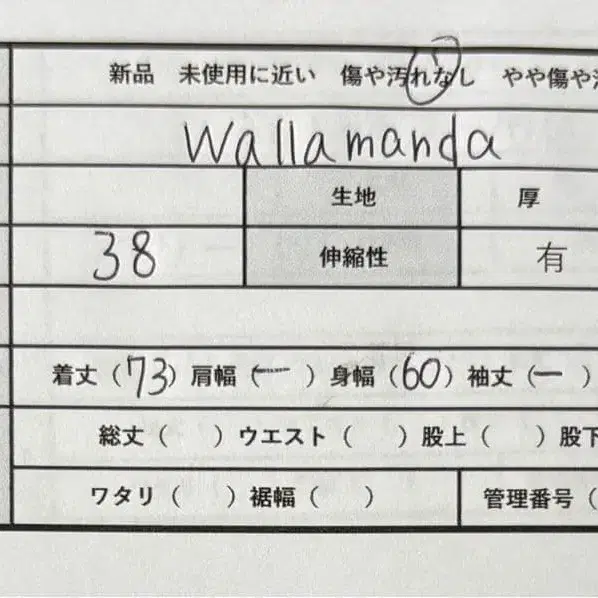 新品 未使用に近い 傷や汚れなし やや傷や
Wallamanda
生地 厚
38 伸縮性 有
着丈(73) 肩幅(ー) 身幅(60) 袖丈(ー)
総丈( ) ウエスト( ) 股上( ) 股下
ワタリ( ) 裾幅( ) 管理番号(